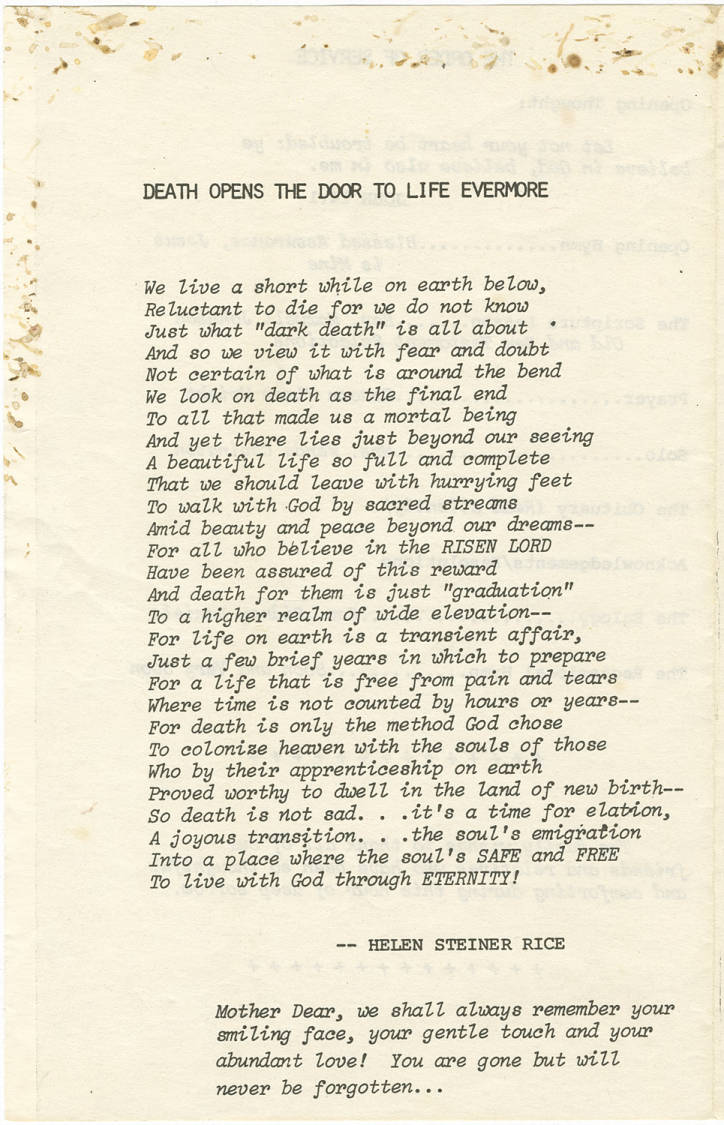 DEATH OPENS THE DOOR TO LIFE EVERMORE
We live a short while on earth below,
Reluctant to die for we do not know
Just what "dark death" is all about
And so we view it with fear and doubt
Not certain of what is around the bend
We look on death as the final end
To all that made us a mortal being
And yet there lies just beyond our seeing
A beautiful life so full and complete
That we should leave with hurrying feet
To walk with God by sacred streams
Amid beauty and peace beyond our dreams--
For all who believe in the RISEN LORD
Have been assured of this reward
And death for them is just "graduation"
To a higher realm of wide elevation--
For life on earth is a transient affair,
Just a few brief years in which to prepare
For a life that is free from pain and tears
Where time is not counted by hours or years--
For death is only the method God chose
To colonize heaven with the souls of those
Who by their apprenticeship on earth
Proved worthy to dwell in the land of new birth--
So death is not sad. . .it's a time for elation,
A joyous transition. . .the soul's emigration
Into a place where the soul's SAFE and FREE
To live with God through ETERNITY!
-- HELEN STEINER RICE
Mother Dear, we shall always remember your
smiling face, your gentle touch and your
abundant love! You are gone but will
never be forgotten...